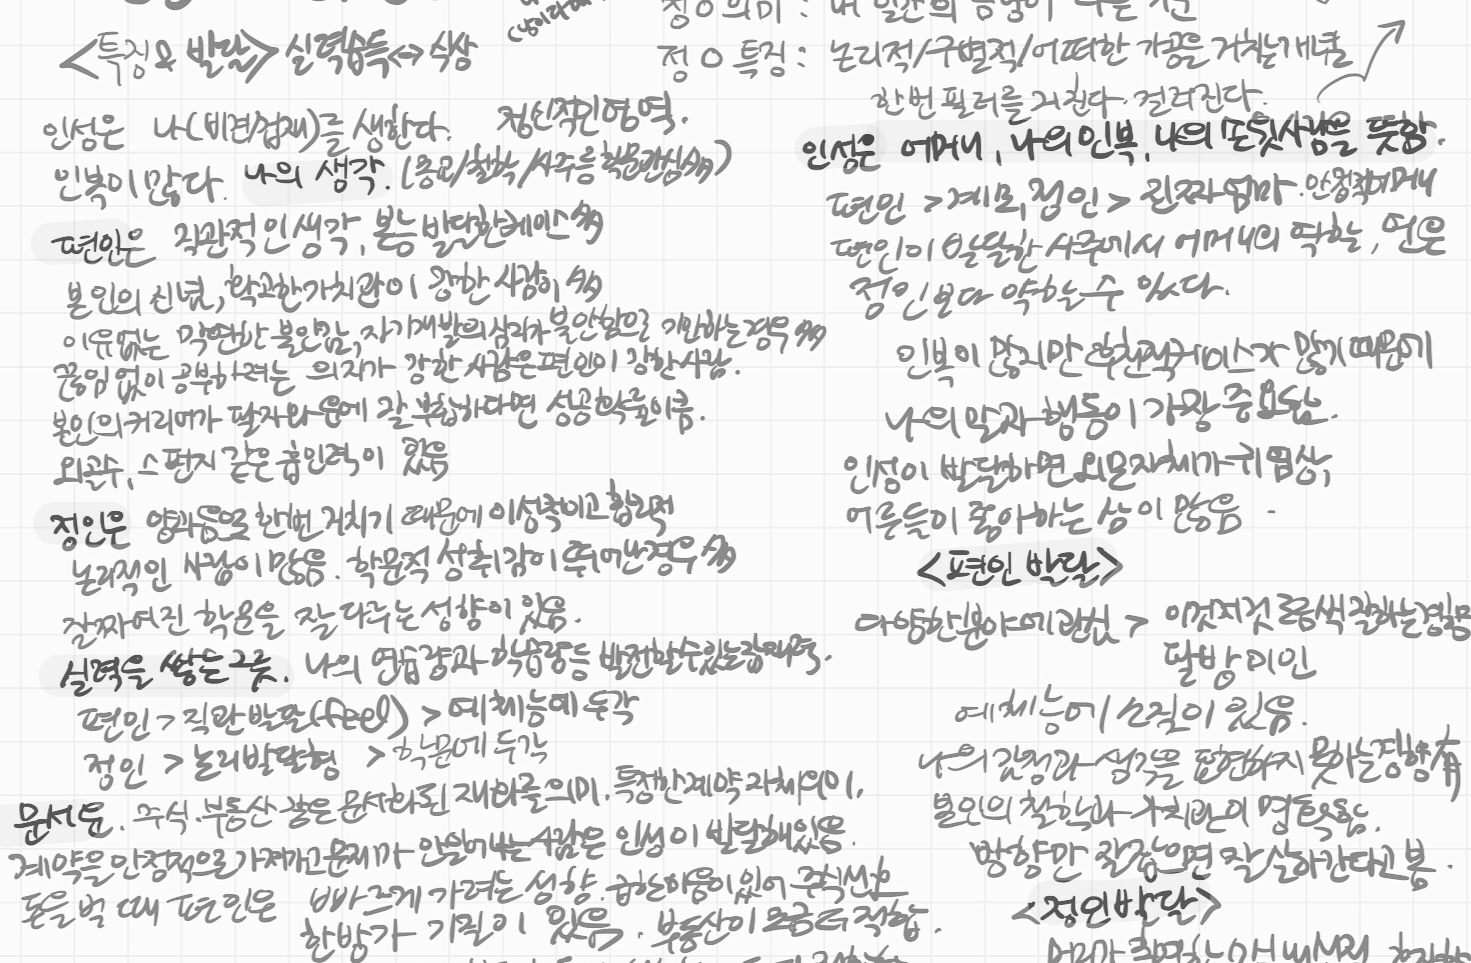 <특징 & 발달> 실력습득 ↔ 식상
인성은 나(비견/겁재)를 생한다. 정신적인 영역.
인복이 많다. 나의 생각. (종교/철학/사주 등 학문 관심 多)
편인은 직관적인 생각, 본능 발달한 케이스 多
본인의 신념, 확고한 가치관이 강한 사람이 多
이유없는 막연한 불안감, 자기개발의 심리가 불안함으로 기인하는 경우 多
끊임없이 공부하려는 의지가 강한 사람은 편인이 강한 사람.
본인의 커리어가 팔자와 운에 잘 부합하다면 성공확률이 높음.
외골수, 스펀지 같은 흡인력이 있음
정인은 양과 음으로 한번 거치기 때문에 이성적이고 합리적
논리적인 사람이 많음. 학문적 성취감이 뛰어난 경우 多
잘 짜여진 학문을 잘 다루는 성향이 있음.
실력을 쌓는 그릇. 나의 연습량과 학습량 등 발전할 수 있는 잠재력.
편인 > 직관 발달(feel) > 예체능에 두각
정인 > 논리발달형 > 학문에 두각
문서운. 주식.부동산 같은 문서화된 재화를 의미. 특정한 계약 자체 의미,
계약을 안정적으로 가져가고 문제가 안 일어나는 사람은 인성이 발달해있음.
돈을 벌 때 편인은 빠르게 가려는 성향. 급한 마음이 있어 주식선호
한방가 기질이 있음. 부동산이 조금 더 적합.
정 O 의미 : 내 일간의 음양이 다른 것
정 O 특징 : 논리적/구별적/어떠한 가공을 거치는 개념
한번 필터를 거친다. 걸러진다.
인성은 어머니, 나의 인복, 나의 도윗사람을 뜻함.
편인 > 계모, 정인 > 진짜 엄마. 안정적 어머니
편인이 발달한 사주에서 어머니의 역할, 연은
정인보다 약할 수 있다.
인복이 많지만 후천적 케이스가 많기 때문에
나의 말과 행동이 가장 중요함.
인성이 발달하면 외모 자체가 귀염상,
어른들이 좋아하는 상이 많음.
<편인 발달>
다양한 분야에 관심 > 이것저것 로 생각하는 경향
팔방미인
예체능에 소질이 있음.
나의 감정과 생각을 표현하지 못하는 경향 有
본인의 철학과 가치관이 명확함.
방향만 잘 잡으면 잘 살아간다고 봄.
<정인 발달>